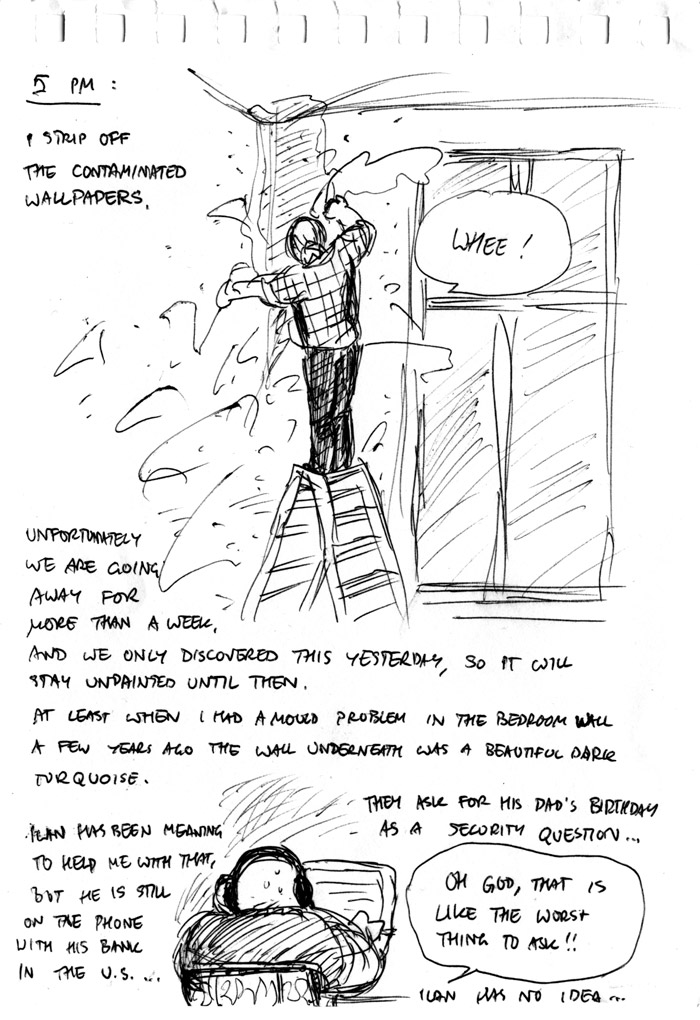 5 PM :
I STRIP OFF
THE CONTAMINATED
WALLPAPERS.
WHEE !
UNFORTUNATELY
WE ARE GOING
AWAY FOR
MORE THAN A WEEK,
AND WE ONLY DISCOVERED THIS YESTERDAY, SO IT WILL
STAY UNPAINTED UNTIL THEN.
AT LEAST WHEN I HAD A MOULD PROBLEM IN THE BEDROOM WALL
A FEW YEARS AGO THE WALL UNDERNEATH WAS A BEAUTIFUL DARK
TURQUOISE.
ILAN HAS BEEN MEANING
TO HELP ME WITH THAT,
BUT HE IS STILL
ON THE PHONE
WITH HIS BANK
IN THE U.S. ...
THEY ASK FOR HIS DAD'S BIRTHDAY
AS A SECURITY QUESTION...
OH GOD, THAT IS
LIKE THE WORST
THING TO ASK !!
ILAN HAS NO IDEA...